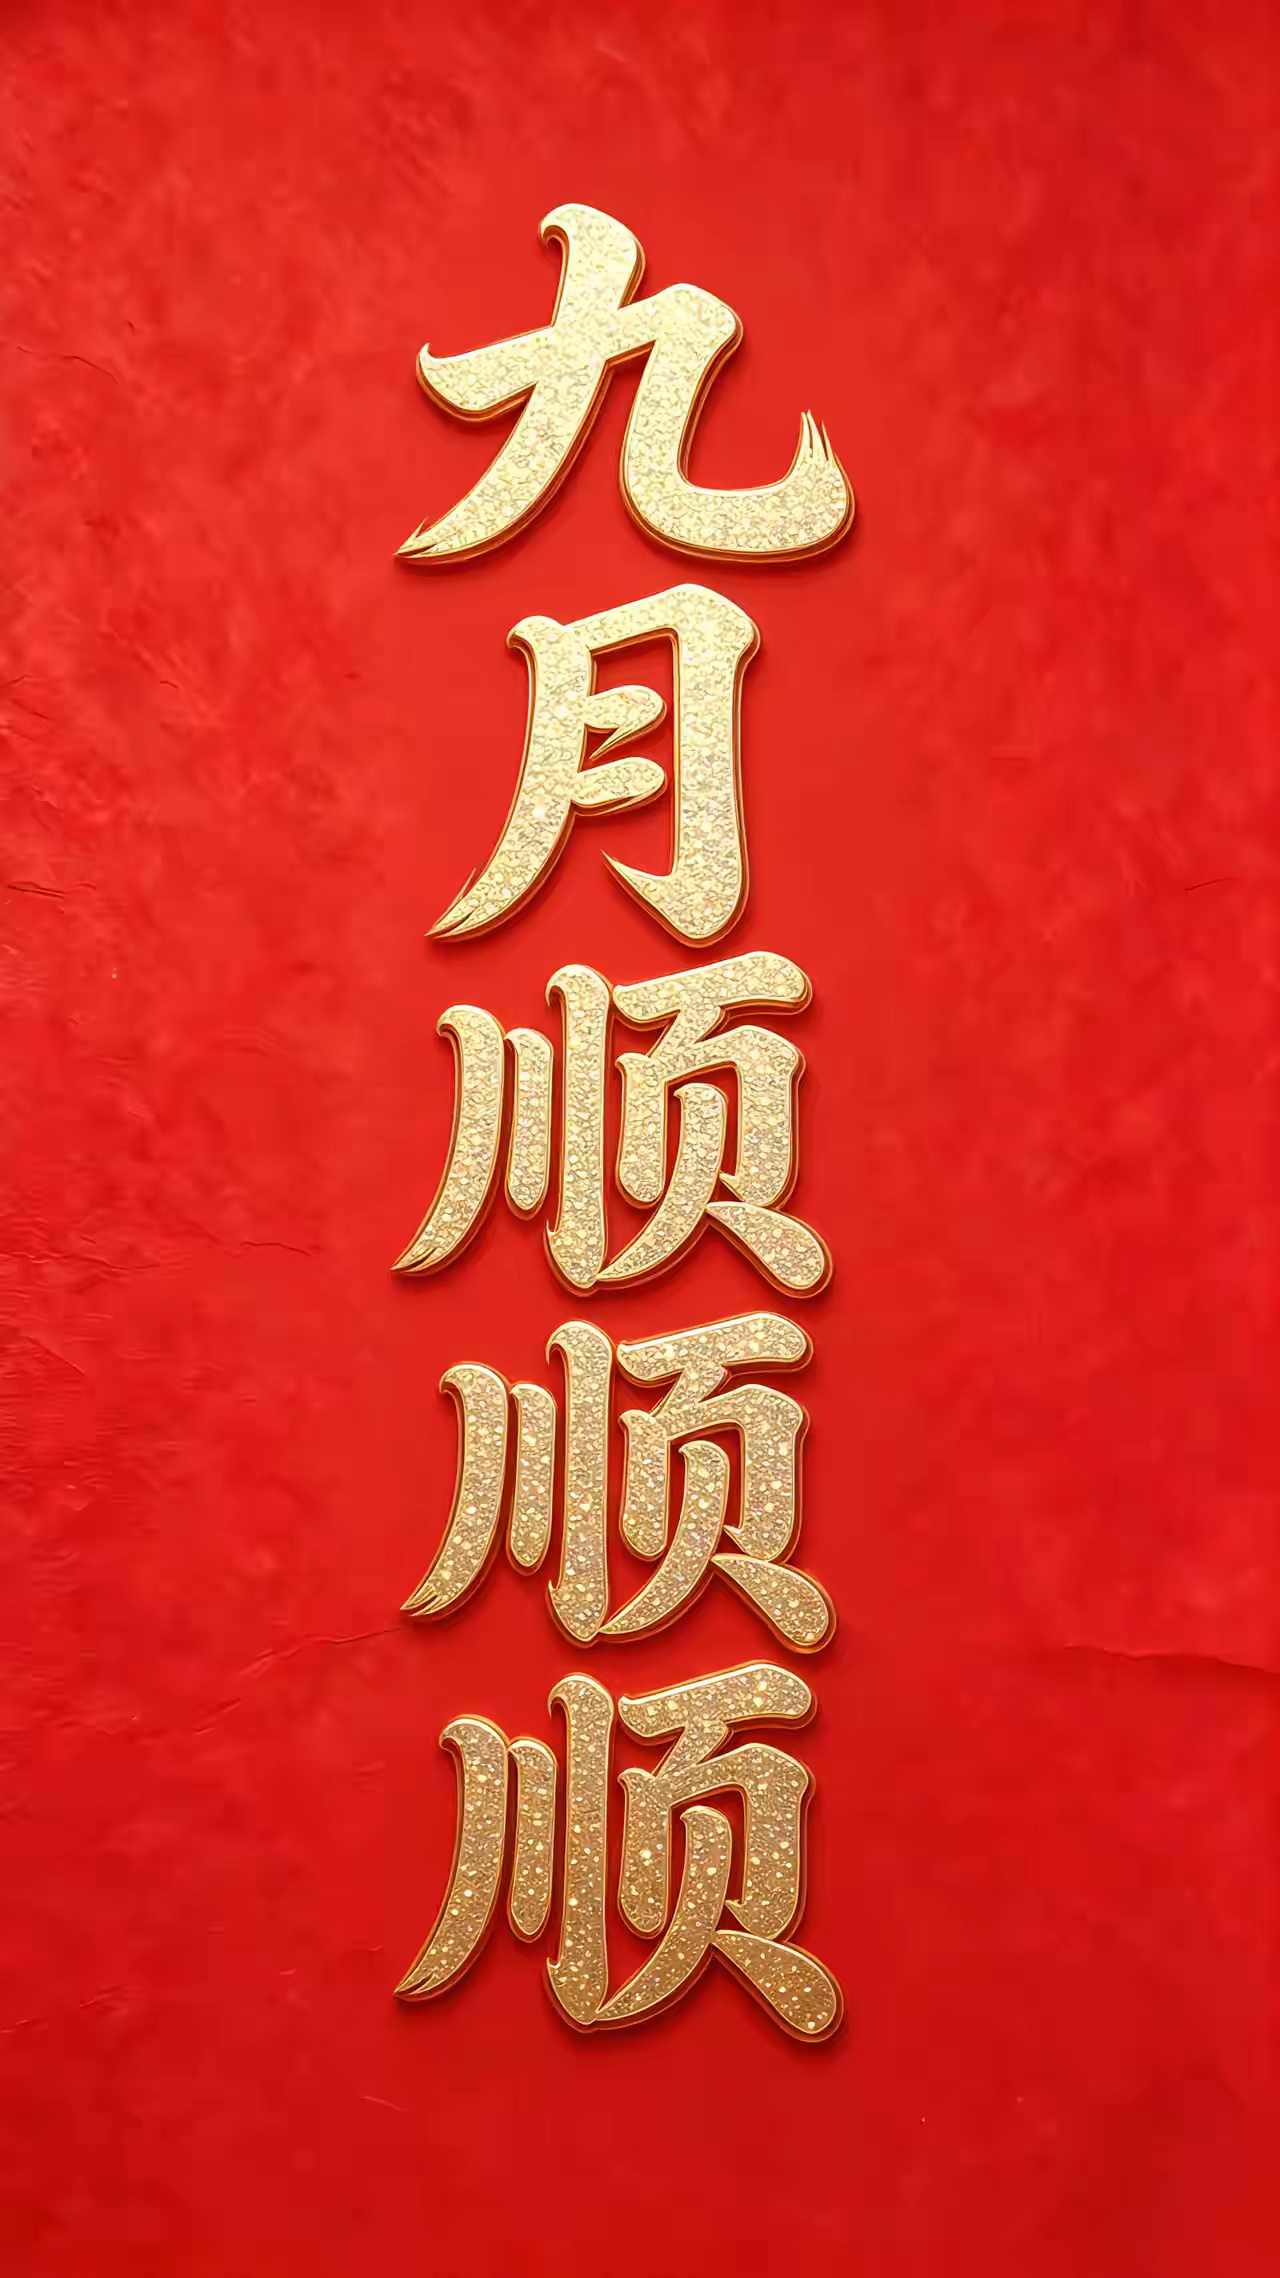 九月顺顺顺